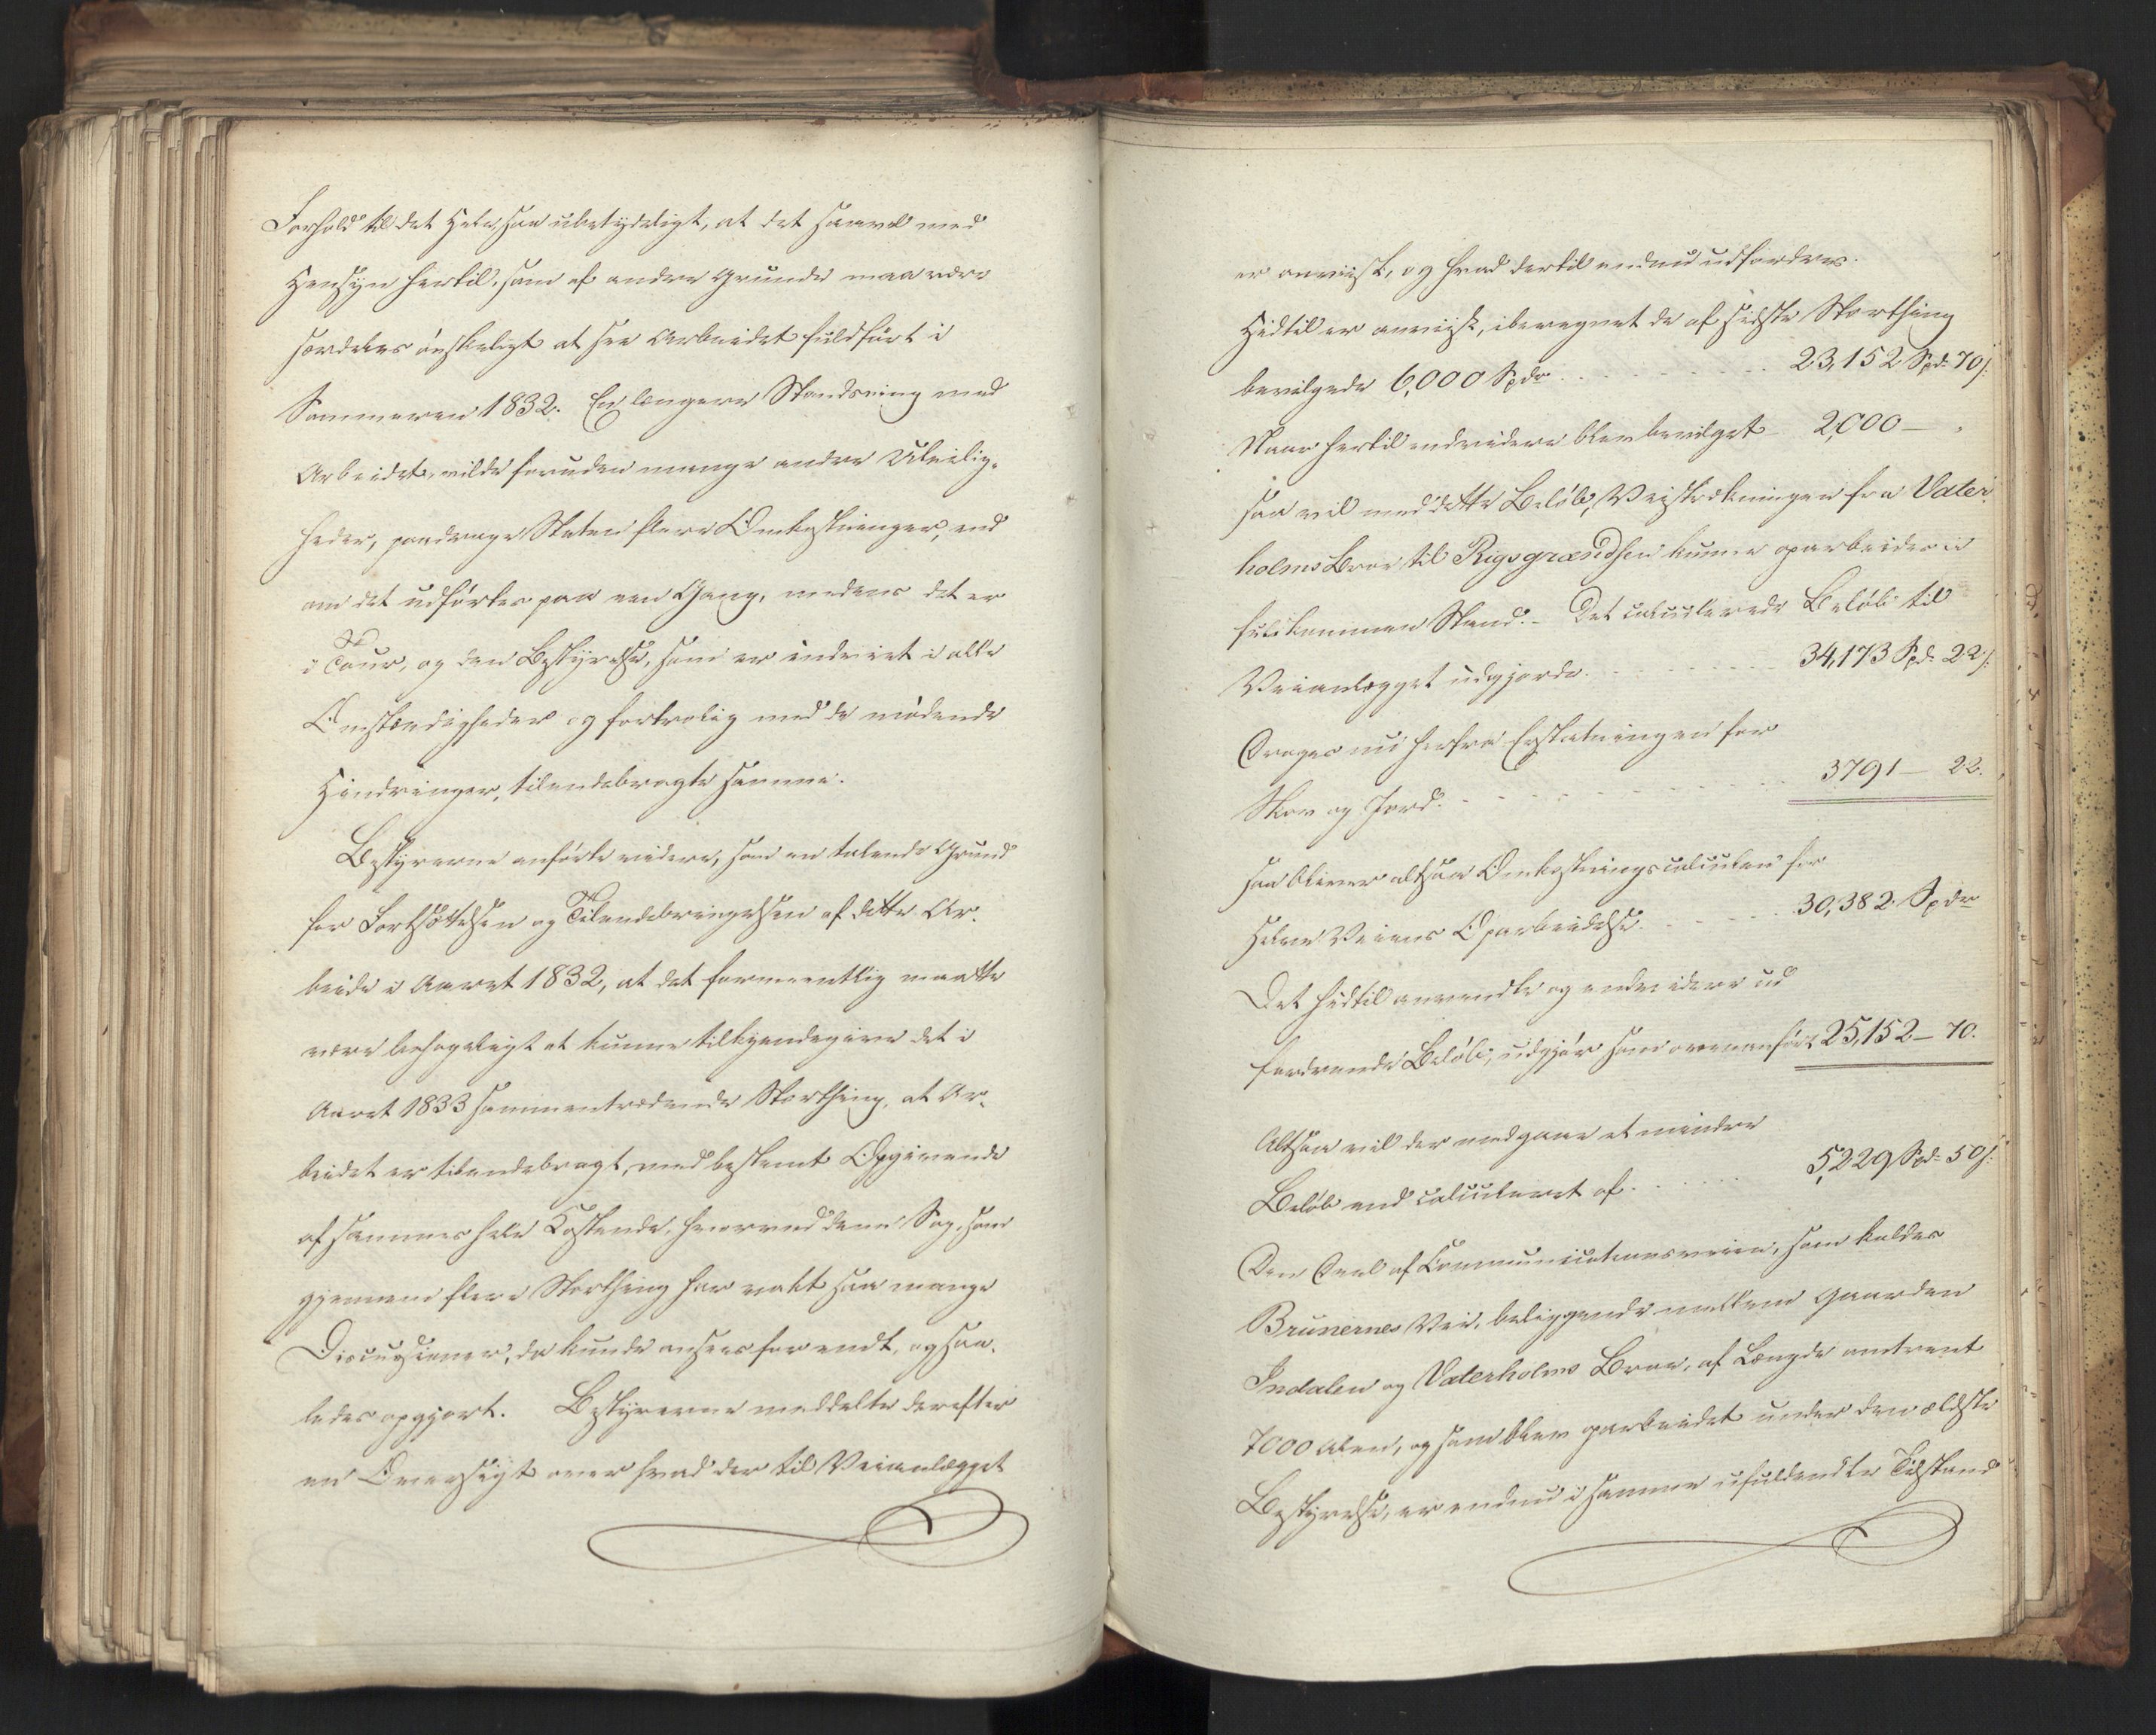 Forhold til det Hele saa ubetydeligt, at det saavel med
Hensyn hertil, som af andre Grunde maa være
særdeles ønskeligt at see Arbeidet fuldført i
Sommeren 1832. En længere Standsning med
Arbeidet, vilde foruden mange andre Uleilig-
heder, paadrage Staten flere Omkostninger, end
om det udførtes paa een Gang, medens det er
i Tour, og den Bestyrelse, som er indviet i alle
Omstændigheder og fortrolig med de mødende
Hindringer, tilendebragte samme.
Bestyrerne anførte videre, som en talende Grund
for Fortsættelsen og Tilendebringelsen af dette Ar-
beide i Aaret 1832, at det formeentlig maatte
være behageligt at kunne tilkjendegive det i
Aaret 1833 sammentrædende Storthing, at Ar-
beidet er tilendebragt, med bestemt Opgivende
af sammes hele Kostende, hvorved denne Sag, som
gjennem flere Storthing har vakt saa mange
Discussioner, da kunde ansees for endt, og saa-
ledes opgjort. Bestyrerne meddelte derefter
en Oversigt over hvad der til Veianlægget
er anviist, og hvad dertil endnu udfordres.
Hidtil er anviist, iberegnet de af sidste Storthing
bevilgede 6,000 Spdr . . . . . 23,152 Spd. 70 s.
Naar hertil endvidere blev bevilget 2,000 – "
saa vil med dette Beløb, Veistrækningen fra Vater-
holms Broe til Rigsgrændsen kunne oparbeides i
fuldkommen Stand. – Det calculerede Beløb til
Veianlægget udgjorde . . . . . 34,173 Spd. 22 s.
Drages nu herfra Erstatningen for
Skov og Jord . . . . . 3791 – 22.
saa bliver altsaa Omkostningscalculen for
Selve Veiens Oparbeidelse . . . . . 30,382 Spdr
Det hidtil anvendte og endvidere ud-
fordrende Beløb, udgjør som ovenanført 25,152 – 70.
Altsaa vil der medgaae et mindre
Beløb end calculeret af . . . . . 5,229 Spd. 50 s.
Den Deel af Communicationsveien, som kaldes
Brunernes Vei, beliggende mellem Gaarden
Indalen og Vaterholms Broe, af Længde omtrent
7000 Alen, og som blev oparbeidet under den ældste
Bestyrelse, er endnu i samme ufuldendte Tilstand